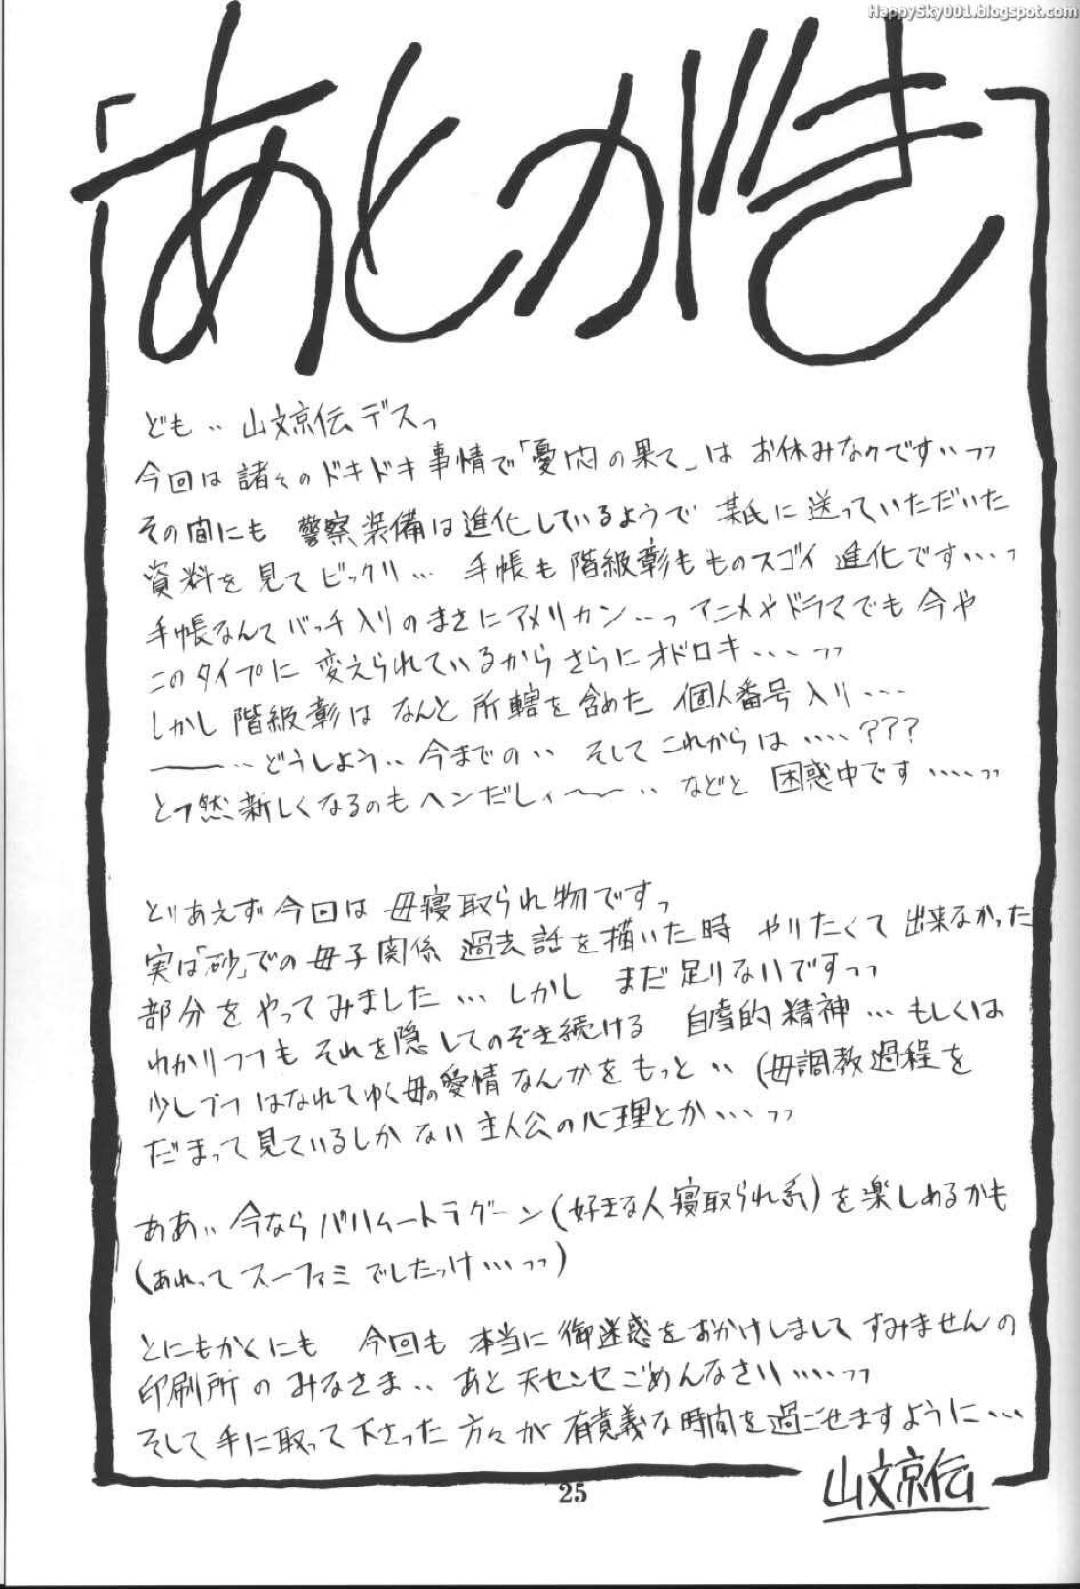 HappySky001.blogspot.com
「あとがき」
ども‥ 山文京伝デスっ
今回は諸々のドキドキ事情で「憂悶の果て」は お休みなのですいッッ
その間にも 警察装備は進化しているようで 某氏に送っていただいた
資料を見てビックリ… 手帳も階級彰もものスゴイ 進化です…っ
手帳なんてバッチ入りのまさにアメリカン…っ アニメやドラマでも 今や
このタイプに 変えられているからさらにオドロキ…ッッ
しかし階級彰は なんと所轄を含めた 個人番号入り…
――‥どうしよう‥今までの‥ そして これからは‥‥???
とつ然新しくなるのもヘンだしィ〜〜‥ などと 困惑中です‥‥ッッ
とりあえず今回は 母寝取られ物ですっ
実は「砂」での母子関係 過去話を描いた時 やりたくて 出来なかった
部分をやってみました… しかし まだ足りないですッッ
わかりつつも それを隠してのぞき続ける 自虐的精神…もしくは
少しづつ はなれてゆく母の愛情なんかをもっと‥ (母調教過程を
だまって見ているしかない主人公の心理とか…ッッ
ああ‥ 今ならバハムートラグーン(好きな人寝取られ系)を楽しめるかも
(あれってスーファミでしたっけ…ッッ)
とにもかくにも 今回も 本当に御迷惑をおかけしまして すみませんの
印刷所のみなさま‥ あと 天センセごめんなさい‥‥ッッ
そして手に取って下さった方々が 有意義な時間を過ごせますように…
山文京伝
25